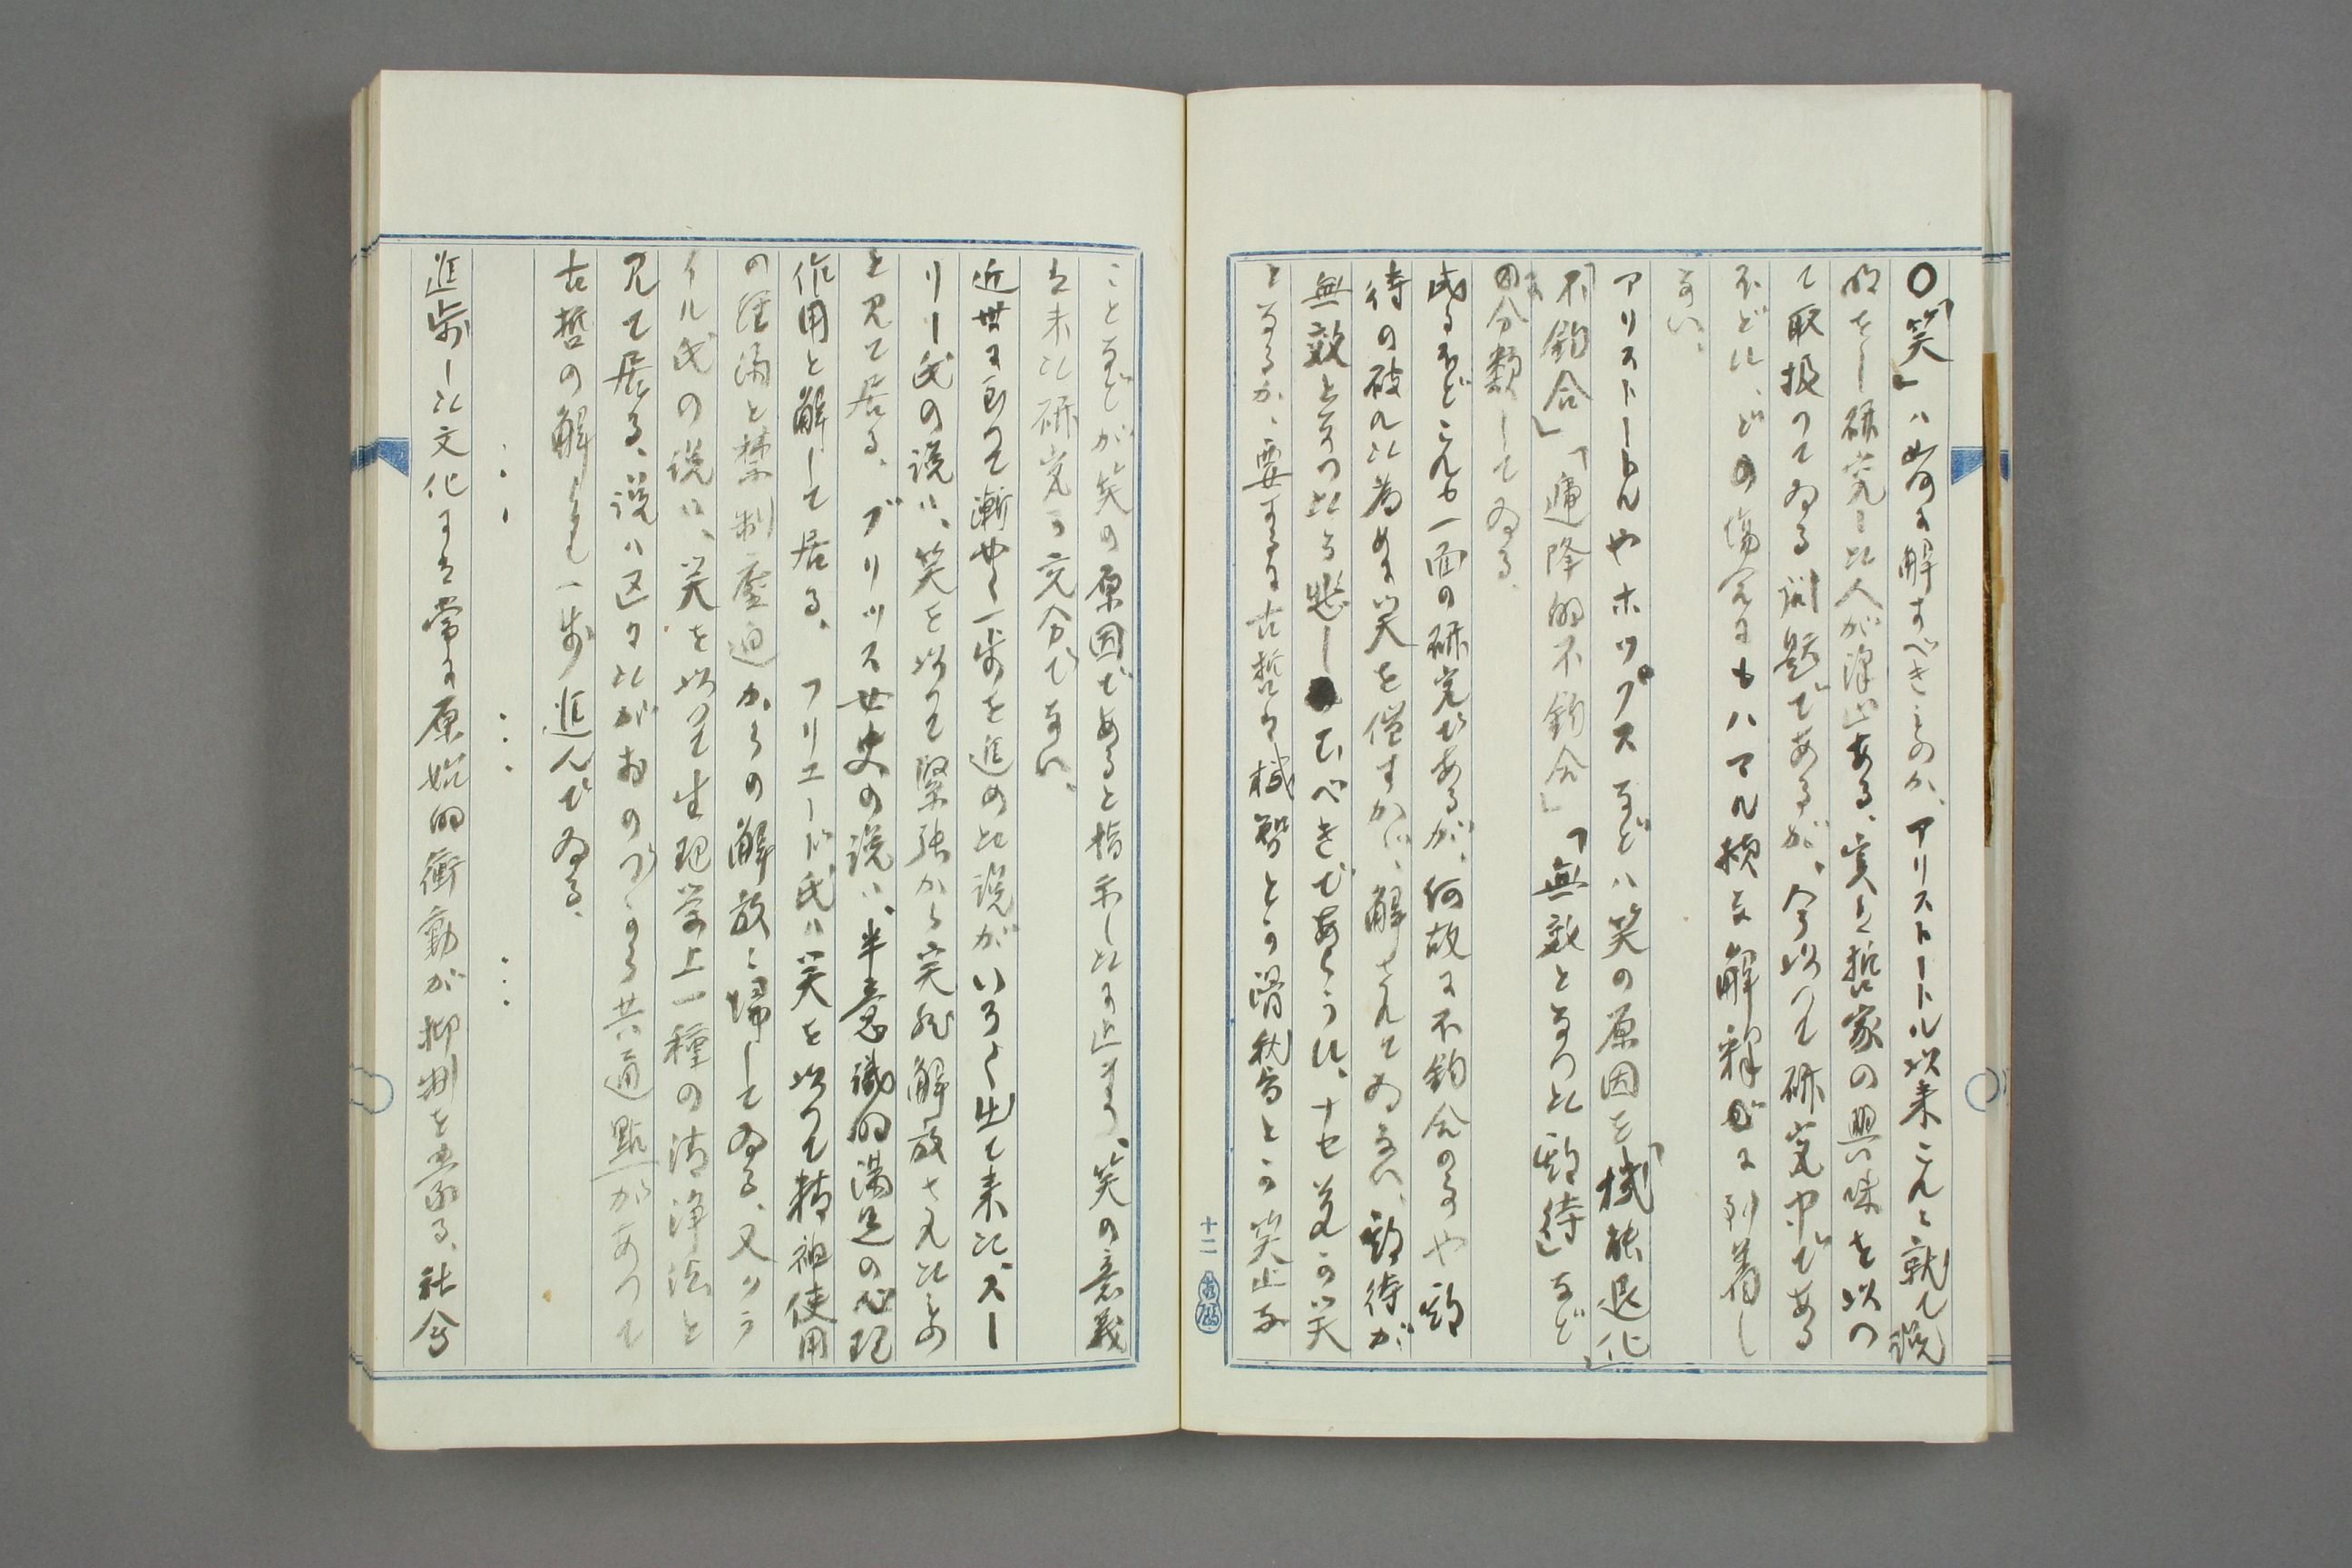 〇「笑」ハ如何に解すべきものか、アリストートル以来これに就て説
明をし研究した人が沢山ある、実は哲家の興味を以つ
て取扱つてゐる問題であるが、今以つて研究中である
ほどに、どの場合にもハマル様な解釈がに到着し
ない、
アリストートルやホッブスなどハ笑の原因を「機能退化」
「不釣合」「逓降的不釣合」「無效となつた期待」など
に分類してゐる、
成るほどこれも一面の研究であるが、何故に不釣合のものや期
待の破れた為めに笑を催すかに、解されてゐない、期待が
無效となつたら悲しむべきであらうに、ナゼ若の笑
となるか、要するに古哲は機智とか滑稽とか笑止な
十二
ことなどが笑の原因であると指示したに止まり、笑の意義
は未だ研究が充分でない、
近世に到つて漸やく一歩を進めた説がいろく出て来た、スー
リリー氏の説に、笑を以つて緊張から突然解放されたもの
と見て居る、ブリッス女史の説に、半意識的満足の心理
作用と解して居る、フリユード氏ハ笑を以つて精神使用
の経済と禁制壓迫からの解放に帰してゐる、又クラ
イル氏の説に、笑を以つて生理学上一種の清浄法と
見て居る、説ハ区々だがおのづから共通點があつて
古哲の解しも一歩進んでゐる、
進歩した文化には常に原始的衝動が抑制を蒙る、社会